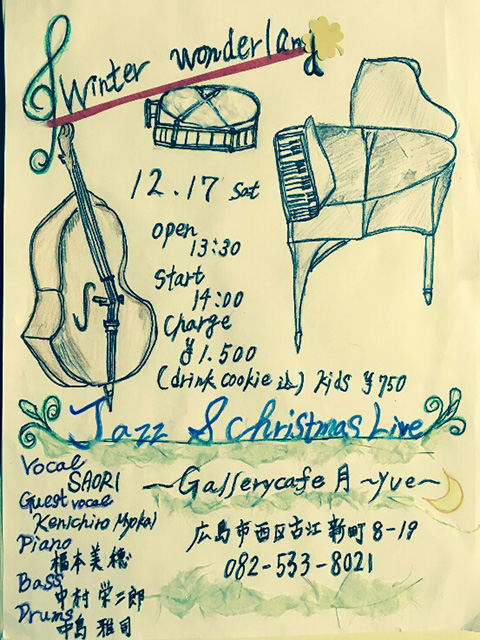 Winter wonderland
12.17 sat
open
13:30
start
14:00
charge
¥1.500
(drink cookie 込) kids ¥750
Jazz & Christmas Live
Vocal
SAORI
Guest vocal
Kenichiro Myokai
Piano
福本美穂
Bass
中村栄二郎
Drums
中島雅司
~Gallerycafe 月 ~yue~
広島市西区古江新町8-19
082-533-8021